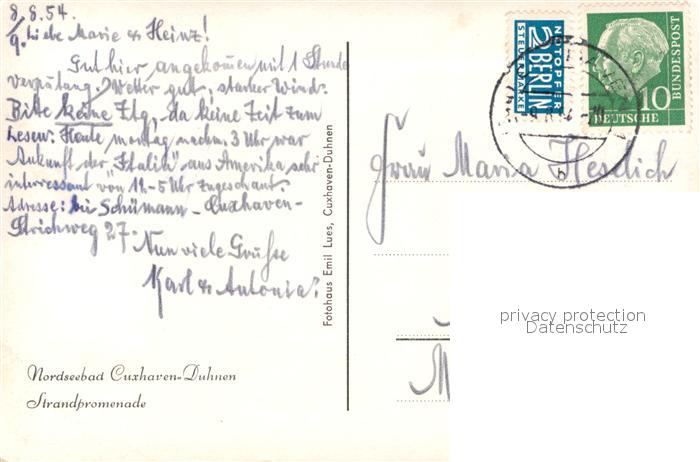 8./8.54.
9. Liebe Marie & Heinz!
Gut hier angekommen mit 1 Stunde
verpätung. Wetter gut, starker Wind.
Bitte keine Ztg., da keine Zeit zum
lesen. Heute montag nachm. 3 Uhr war
Ankunft der "Italia" aus Amerika sehr
interressant von 11-5 Uhr zugeschaut.
Adresse: bei Schümann - Cuxhaven-
Strichweg 27.
Nun viele Grühse
Karl & Antonia.
Nordseebad Cuxhaven-Duhnen
Strandpromenade
Fotohaus Emil Lues, Cuxhaven-Duhnen
NOTOPFER
2 BERLIN
STEUERMARKE
10
DEUTSCHE
BUNDESPOST
b
Frau Maria
privacy protection
Datenschutz